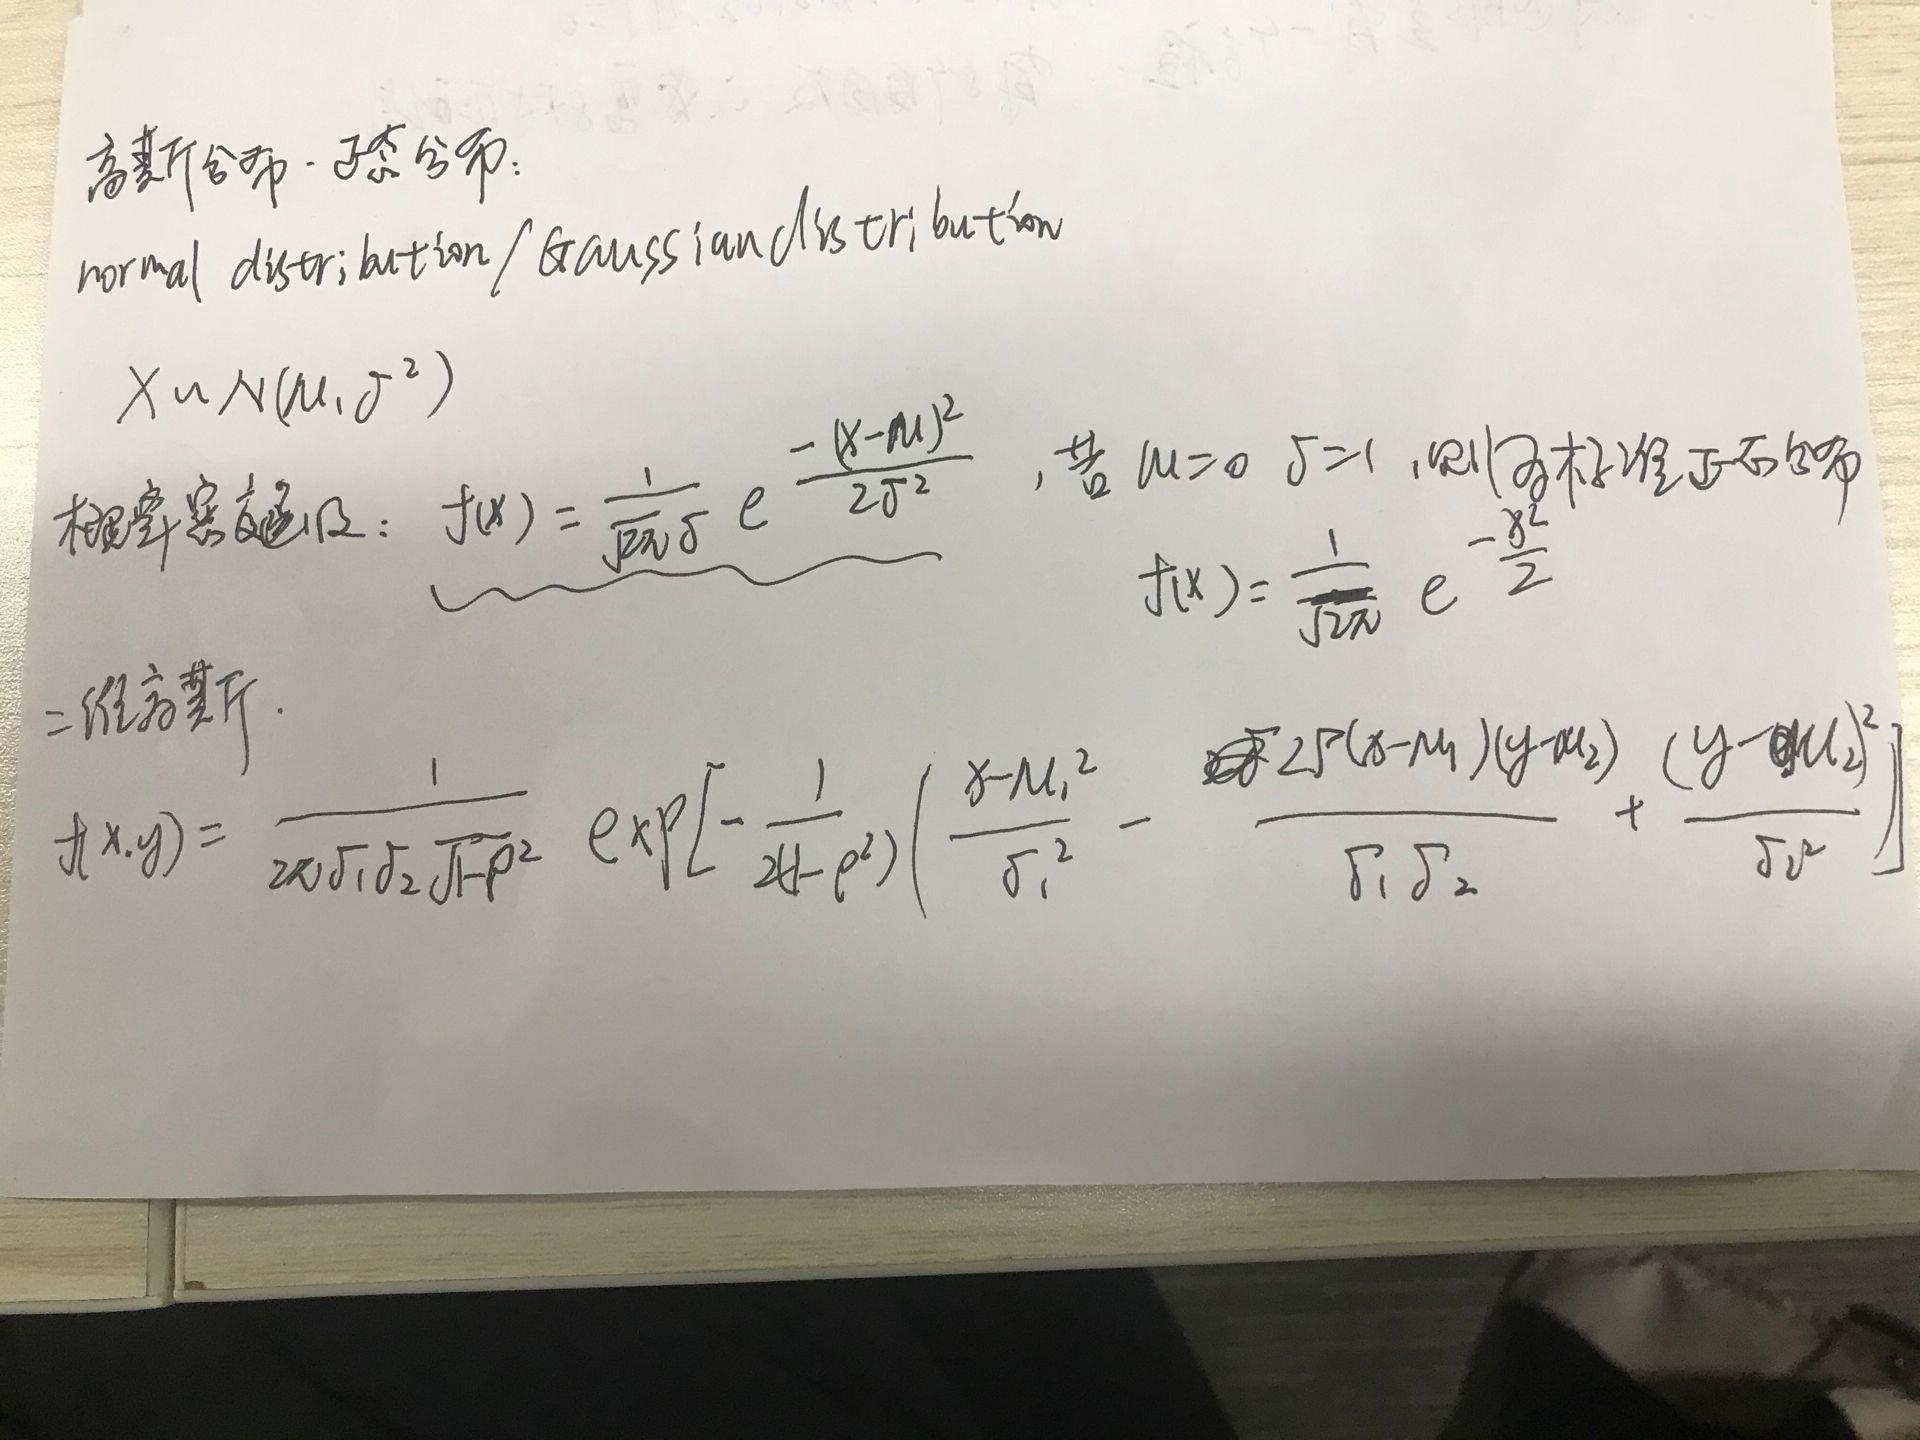 高斯分布·正态分布:
normal distribution/Gaussian distribution
X~N(μ,σ²)
概率密度函数: f(x) = 1/(√2π σ) e^(-(x-μ)²/2σ²) , 若 μ=0 σ=1 , 则为标准正态分布
f(x) = 1/√2π e^(-x²/2)
二维高斯.
f(x.y) = 1/(2πσ₁σ₂√1-ρ²) exp[-1/2(1-ρ²) ( x-μ₁²/σ₁² - 2σ(x-μ₁)(y-μ₂)/σ₁σ₂ + (y-μ₂)²/σ₂² ]